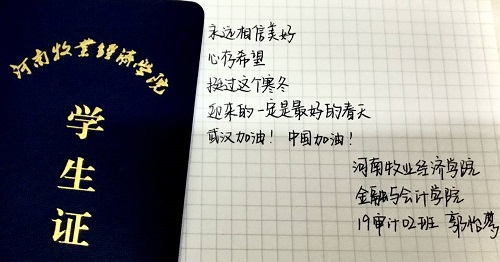 河南牧業經濟學院
学生证
永远相信美好
心存希望
挺过这个寒冬
迎来的一定是最好的春天
武汉加油！中国加油！
河南牧业经济学院
金融与会计学院
19审计02班 郭怡